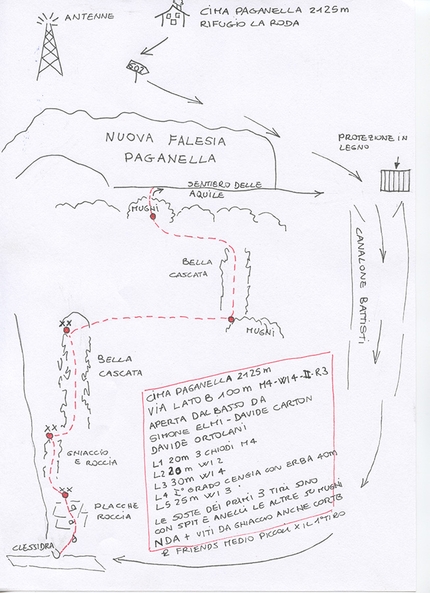 ANTENNE
CIMA PAGANELLA 2125m
RIFUGIO LA RODA
602
NUOVA FALESIA
PAGANELLA
PROTEZIONE IN
LEGNO
SENTIERO DELLE
AQUILE
MUGHI
BELLA
CASCATA
CANALONE BATTISTI
XX
MUGHI
BELLA
CASCATA
XX
GHIACCIO
E ROCCIA
XX
PLACCHE
ROCCIA
CLESSIDRA
CIMA PAGANELLA 2125m
VIA LATO B 100m M4-WI4-II-R3
APERTA DAL BASSO DA
SIMONE ELMI - DAVIDE CARTON
DAVIDE ORTOLANI
L1 20m 3 CHIODI M4
L2 20m WI 2
L3 30m WI 4
L4 I° GRADO CENGIA CON ERBA 40m
L5 25m WI 3
LE SOSTE DEI PRIMI 3 TIRI SONO
CON SPIT E ANELLI LE ALTRE SU MUGHI
NDA + VITI DA GHIACCIO ANCHE CORTE
E FRIENDS MEDIO PICCOLI X IL 1° TIRO